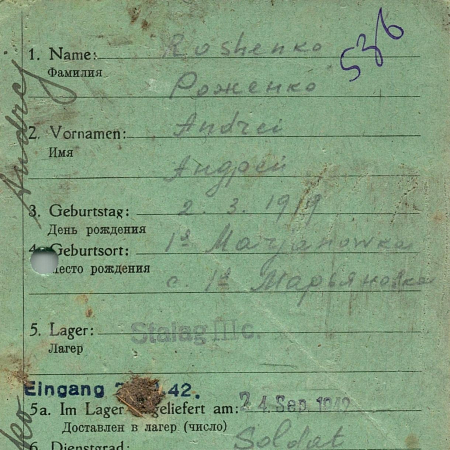 536
1. Name: Roshenko
Фамилия Роженко
2. Vornamen: Andrei
Имя Андрей
3. Geburtstag: 2. 3. 1919
День рождения
4. Geburtsort: 1я Marjanowka
место рождения с. 1я Марьяновка
5. Lager: Stalag III c.
Лагер
Eingang 42.
5a. Im Lager geliefert am: 24. Sep. 1942
Доставлен в лагер (число)
6. Dienstgrad: Soldat
Andrej